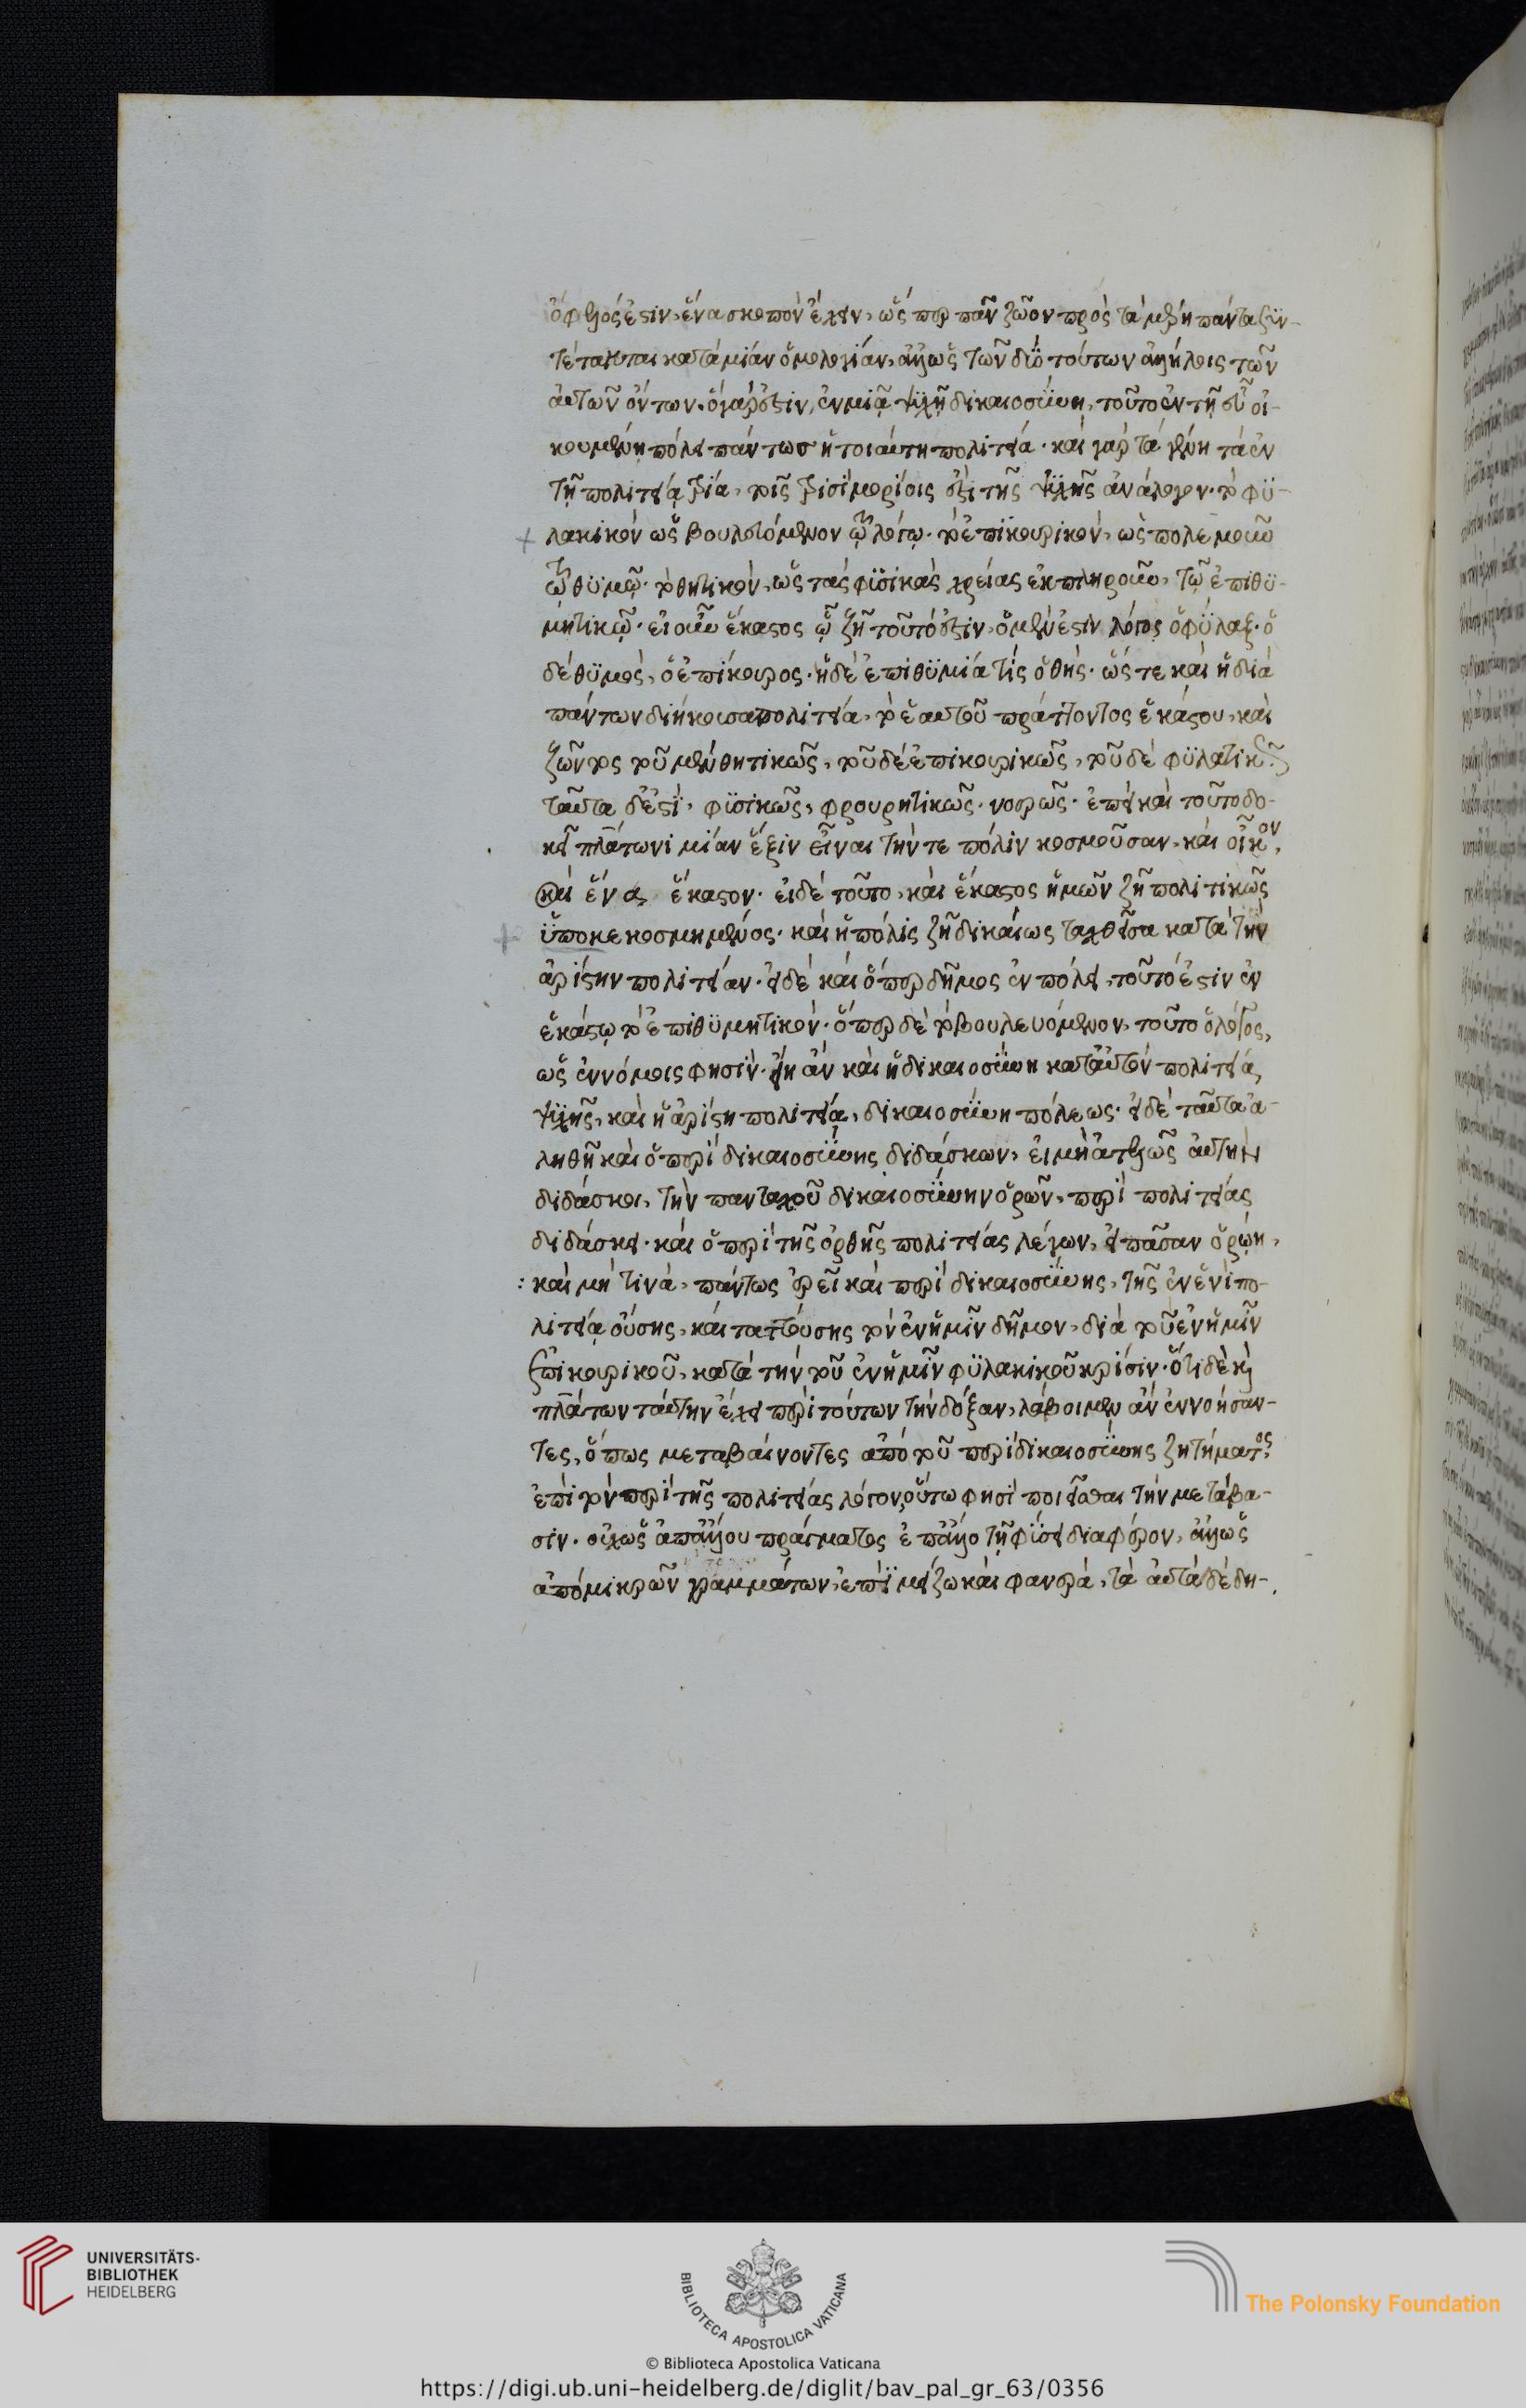 ὀφειλός ἐστιν, ἕνα σκοπὸν ἔχειν, ὥς περ πᾶν ζῶον πρὸς τὰ μέρη πάντα ξυν-
τέτακται κατὰ μίαν ὁμολογίαν, ἀλλ' ὡς τῶν δύο τούτων ἀλλήλοις τῶν
αὐτῶν ὄντων. ὃ γάρ ἐστιν, ἐν μιᾷ ψυχῇ δικαιοσύνη, τοῦτο ἐν τῇ εὖ οἰ-
κουμένη πόλει πάντως ἡ τοιαύτη πολιτεία. καὶ γὰρ τὰ γένη τὰ ἐν
τῇ πολιτείᾳ τρία, τοῖς τρισὶ μορίοις ἐστὶ τῆς ψυχῆς ἀνάλογον. τὸ φυ-
λακικὸν ὡς βουλευόμενον τῷ λόγῳ. τὸ ἐπικουρικὸν, ὡς πολεμοῦν
τῷ θυμῷ. τὸ θητικὸν, ὡς τὰς φυσικὰς χρείας ἐκπληροῦν, τῷ ἐπιθυ-
μητικῷ. εἰ οὖν ἕκαστος ᾧ ζῇ τοῦτό ἐστιν, ὁ μέν ἐστιν λόγος ὁ φύλαξ. ὁ
δὲ θυμὸς, ὁ ἐπίκουρος. ἡ δὲ ἐπιθυμία τίς ὁ θής. ὥς τε καὶ ἡ διὰ
πάντων διήκουσα πολιτεία, τὸ ἑαυτοῦ πράττοντος ἑκάστου, καὶ
ζῶντος τοῦ μὲν θητικῶς, τοῦ δὲ ἐπικουρικῶς, τοῦ δὲ φυλακικῶς
ταῦτα δέ ἐστι, φυσικῶς, φρουρητικῶς. νοερῶς. ἐπεὶ καὶ τοῦτο δο-
κεῖ πλάτωνι μίαν ἕξιν εἶναι τήν τε πόλιν κοσμοῦσαν, καὶ οἶκον,
καὶ ἕνα ἕκαστον. εἰ δὲ τοῦτο, καὶ ἕκαστος ἡμῶν ζῇ πολιτικῶς
ὑποκεκοσμημένος. καὶ ἡ πόλις ζῇ δικαίως ταχθεῖσα κατὰ τὴν
ἀρίστην πολιτείαν. εἰ δὲ καὶ ὅπερ δῆμος ἐν πόλει, τοῦτό ἐστιν ἐν
ἑκάστῳ τὸ ἐπιθυμητικόν. ὅπερ δὲ τὸ βουλευόμενον, τοῦτο ὁ λόγος,
ὡς ἐν νόμοις φησίν. εἴη ἂν καὶ ἡ δικαιοσύνη κατ' αὐτὸν πολιτεία,
ψυχῆς, καὶ ἡ ἀρίστη πολιτεία, δικαιοσύνη πόλεως. εἰ δὲ ταῦτα ἀ-
ληθῆ καὶ ὁ περὶ δικαιοσύνης διδάσκων, εἰ μὴ ἀτελῶς αὐτὴν
διδάσκοι, τὴν πανταχοῦ δικαιοσύνην ὁρῶν, περὶ πολιτείας
διδάσκει. καὶ ὁ περὶ τῆς ὀρθῆς πολιτείας λέγων, εἰ πᾶσαν ὁρῴη,
καὶ μή τινα, πάντως ἐρεῖ καὶ περὶ δικαιοσύνης, τῆς ἐν ἑνὶ πο-
λιτείᾳ οὔσης, καὶ ταττούσης τὸν ἐν ἡμῖν δῆμον, διὰ τοῦ ἐν ἡμῖν
ἐπικουρικοῦ, κατὰ τὴν τοῦ ἐν ἡμῖν φυλακικοῦ κρίσιν. ὅτι δὲ καὶ
πλάτων ταύτην ἔχει περὶ τούτων τὴν δόξαν, λάβοιμεν ἂν ἐννοήσαν-
τες, ὅπως μεταβαίνοντες ἀπὸ τοῦ περὶ δικαιοσύνης ζητήματος
ἐπὶ τὸν περὶ τῆς πολιτείας λόγον, οὕτω φησὶ ποιεῖσθαι τὴν μετάβα-
σιν. οὐχ ὡς ἀπ' ἄλλου πράγματος ἐπ' ἄλλο τῇ φύσει διαφέρον, ἀλλ' ὡς
ἀπὸ μικρῶν γραμμάτων, ἐπὶ μείζω καὶ φανερὰ, τὰ αὐτὰ δὲ δη-
UNIVERSITÄTS-
BIBLIOTHEK
HEIDELBERG
BIBLIOTECA APOSTOLICA VATICANA
The Polonsky Foundation
© Biblioteca Apostolica Vaticana
https://digi.ub.uni-heidelberg.de/diglit/bav_pal_gr_63/0356